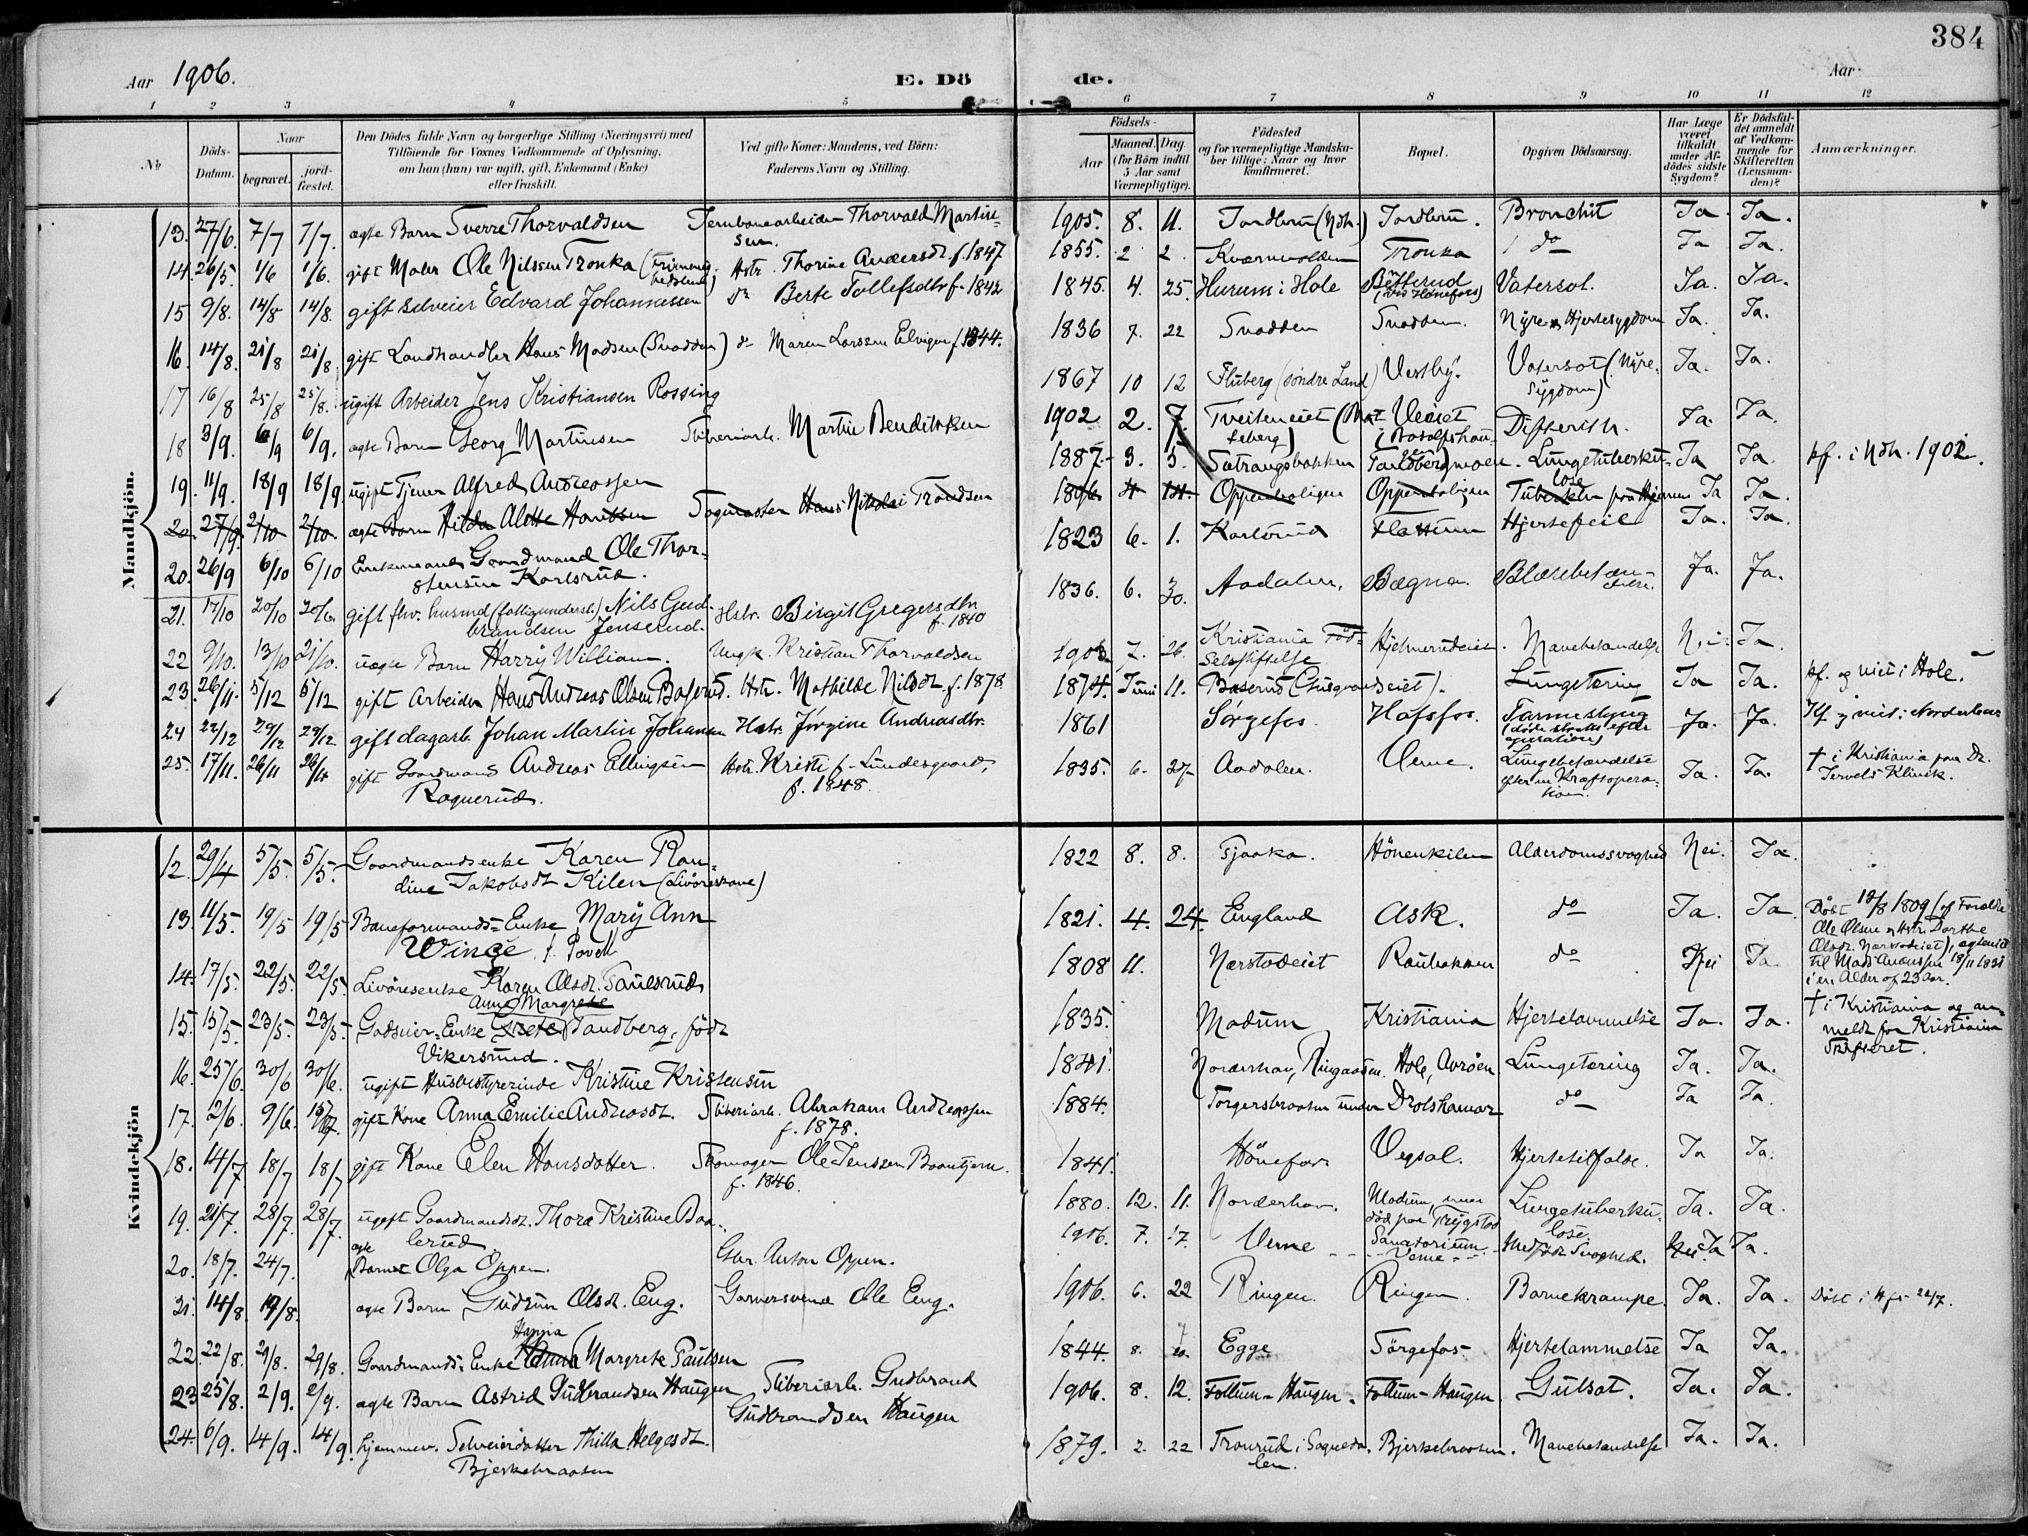 384
Aar 1906. E. Dö de. Aar
1 2 3 4 5 6 7 8 9 10 11 12
No Döds-Datum. Naar begravet. jordfæstet. Den Dödes fulde Navn og borgerlige Stilling (Næringsvei) med Tilföiende for Voxnes Vedkommende af Oplysning, om han (hun) var ugift, gift, Enkemand (Enke) eller fraskilt. Ved gifte Koner: Mandens, ved Börn: Faderens Navn og Stilling. Födsels- Aar Maaned. Dag. (for Börn indtil 5 Aar samt Værnepligtige). Födested og for værnepligtige Mandskaber tillige: Naar og hvor konfirmeret. Bopæl. Opgiven Dödsaarsag. Har Læge været tilkaldt under Afdödes sidste Sygdom? Er Dödsfaldet anmeldt af Vedkommende for Skifteretten (Lensmanden)? Anmærkninger.
Mandkjön.
13. 27/6. 7/7 7/7. ægte Barn Sverre Thorvaldsen Jernbanearbeider Thorvald Martinsen. 1905. 8. 11. Tandberg (Ndh.) Bronchit Ja. Ja.
14. 26/5. 1/6 1/6. gift Maler Ole Nilssen Tronka Hstr. Thorine Andersdt. f. 1847 1855. 2 2. Kværnvolden Tronka do Ja Ja.
15 9/8. 14/8 14/8. gift Selveier Edvard Johannessen do Berte Tollefsdtr f. 1842 1845. 4. 25. Hurum i Hole (ved Hönefoss) Vatersot. Ja. Ja.
16. 14/8. 21/8 21/8. gift Landhandler Hans Madsen (Snadden) do Maren Larssen Elvigen f. 1844. 1836 7. 22 Snadden Snadden. Nyre, Hjertesygdom Ja. Ja.
17 16/8 25/8 25/8. ugift Arbeider Jens Kristiansen Rossing 1867 10 12 Fluberg (söndre Land) Vestby. Vatersot (Nyresygdom) Ja. Ja.
18 3/9. 6/9 6/9. ægte Barn Georg Martinsen Sliberiarb. Martin Bendiksen 1902 2. 7. Tveiteneiet Difterith. Ja. Ja.
19. 11/9. 18/9 18/9. ugift Tjener Alfred Andreassen 1887. 3. 3. Sætrangsbakken Tandbergmoen. Lungetuberkulose Ja Ja. kf. i Ndh. 1902.
20. 27/9. 2/10 2/10. ægte Barn Hilda Alette Hansen Sagmester Hans Nikolai Trondsen 1896. 4 14. Oppenboligen Oppenboligen Tuberkler paa Hjernen Ja Ja.
20. 26/9 6/10 6/10 Enkemand Gaardmand Ole Thorstensen Karlsrud. 1823 6. 1. Karlsrud Flattum Hjertefeil Ja. Ja.
21. 17/10 20/10 20/10. gift fhv. husmd (fattigunderst.) Nils Gudbrandsen Jenserud. Hstr. Birgit Gregersdtr f. 1840 1836. 6. 30. Aadalen. Bægna. Blærebetændelse. Ja. Ja.
22 9/10. 13/10 21/10. uægte Barn Harry William. Ungk. Kristian Thorvaldsen 1903. 7. 26. Kristiania Födselsstiftelse Hjelmerudeiet. Mavebetændelse Nei. Ja.
23. 26/11. 5/12 5/12 gift Arbeider Hans Andreas Olsen Baserud. Hstr. Mathilde Nilsdt. f. 1878 1874. Juni 11. Baserud Lungetæring Ja Ja kf. og viet i Hole.
24 22/12 29/12 29/12 gift dagarb. Johan Martin Johansen Hstr. Jörgine Andreasdtr. 1861 Sörgefos. Hofsfos. Tarmeslyng (döde straks efter operation) Ja. Ja. Kf. og viet i Norderhov
25. 17/11. 26/11 26/11 gift Gaardmand Andreas Ellingsen Ragnerud. Hstr. Kristi f. Lundesgaard, f. 1848. 1835. 6. 27. Aadalen. Veme. Lungebetændelse efter en Kræftoperation. Ja. Ja. † i Kristiania paa Dr. Jervels Klinik.
Kvindekjön
12. 29/4 5/5. 5/5. Gaardmandsenke Karen Randine Jakobsdt Kilen (Livöreskone) 1822 8. 8. Tjaaka. Hönenkilen Alderdomssvaghed Nei. Ja.
13. 11/5. 19/5 19/5 Baneformands-Enke Mary Ann Wince f. Povell 1821. 4. 24. England Ask. do Ja. Ja. Döbt 13/8 1809 (af Forældre Ole Olsen og Hstr. Dorthe Olsdt. Nærstadeiet), ægteviet til Mads Andersen 18/11 1831 i en Alder af 23 Aar.
14. 17/5. 22/5. 22/5. Livöresenke Karen Olsdt. Paulsrud 1808 11. Nærstadeiet Raubakken do Nei Ja
15. 15/5. 23/5. 23/5. Godseier-Enke Anne Margrethe Grete Tandberg, född Vikersund. 1835. Modum Kristiania Hjertelammelse Ja. Ja. † i Kristiania og anmeldt for Kristiania Skifteret.
16. 25/6. 30/6 30/6. ugift Husbestyrerinde Kristine Kristensen 1841. Norderhov, Ringaasen. Hole, Avröen Lungetæring Ja. Ja.
17. 2/6. 9/6. gift Kone Anna Emilie Andreasdt. Sliberiarb. Abraham Andreassen f. 1878. 1884. Torgersbraaten under Drolshammer do Ja Ja.
18. 14/7 18/7 18/7 gift Kone Elen Hansdatter. Skomager Ole Jenssen Baantjern. f. 1846. 1841. Hönefoss Vegsal. Hjertetilfælde. Ja Ja.
19. 21/7. 28/7. 28/7. ugift Gaardmandsdt. Thora Kristine Baalerud 1880. 12. 11. Norderhov. Modum, men död paa Trygstad Sanatorium. Lungetuberkulose. Ja. Ja.
20. 18/7. 24/7. ægte Barnet Olga Oppen. Gbr. Anton Oppen. 1906. 7. 17. Veme Veme Medfödt Svaghed. Nei Ja Ja.
21. 14/8. 19/8. ægte Barn Gudrun Olsdt. Eng. Garversvend Ole Eng. 1906. 6. 22 Ringen. Ringen. Barnekrampe. Ja. Ja. Döbt i Hjm 22/7.
22. 22/8. 29/8. 29/8. Gaardmands-Enke Hanna Anna Margrete Paulsen 1844. 8. Egge Sörgefos Hjertelammelse Ja Ja.
23 25/8. 2/9. 2/9. ægte Barn Astrid Gudbrandsen Haugen Sliberiarb. Gudbrand Gudbrandsen Haugen 1906. 8. 12. Follum-Haugen. Follum-Haugen. Gulsot. Ja. Ja.
24. 6/9. 14/9. 14/9. hjemmev. Selveierdatter Thilla Helgesdt. Bjerkebraaten 1879. 2. 22 Tronrud i Soknedalen. Bjerkebraaten. Mavebetændelse Ja. Ja.